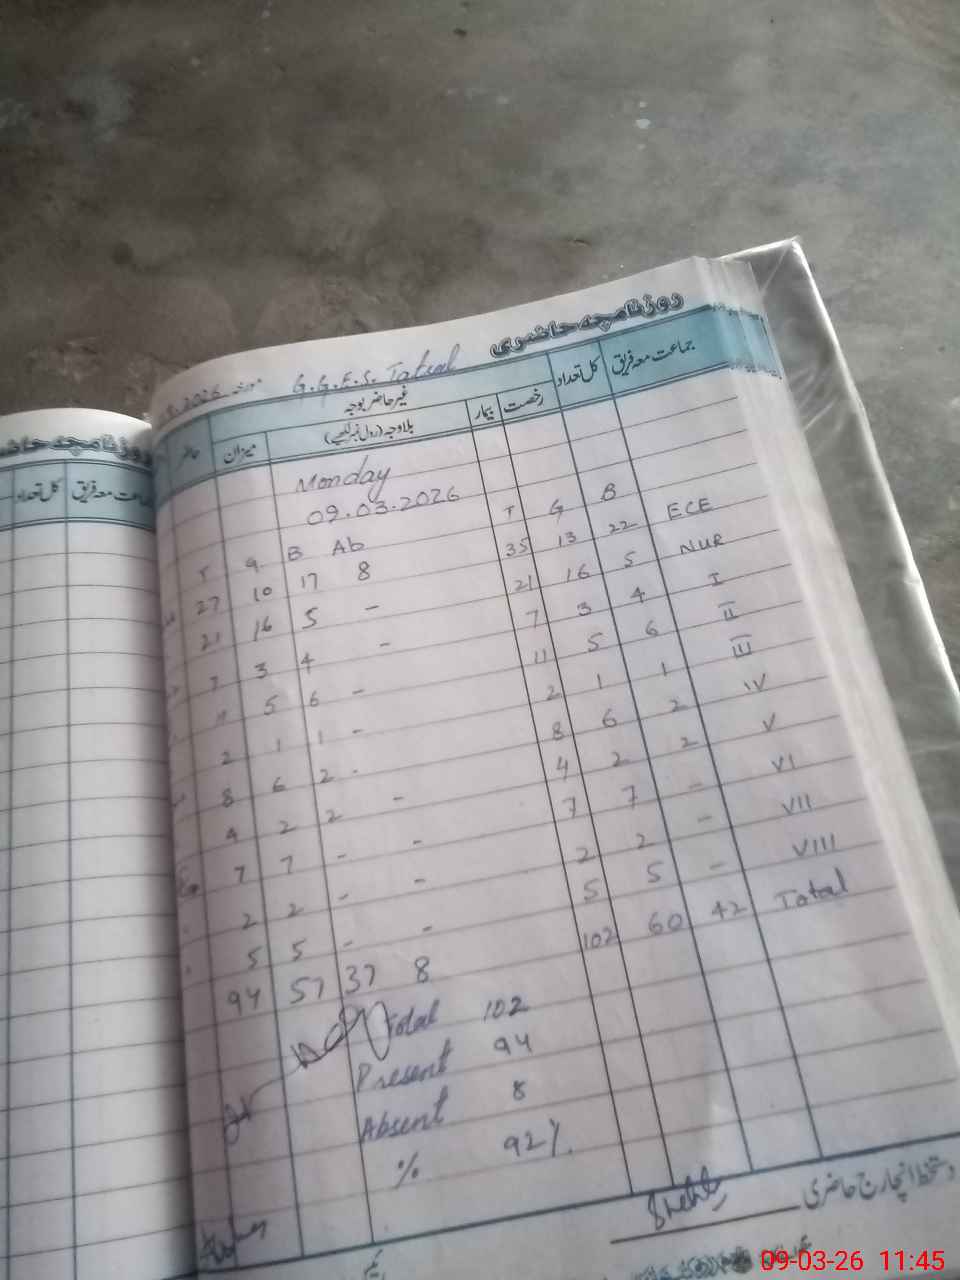 روزنامچہ حاضری
G.G.E.S. Tatral
مورخہ 2026
جماعت معہ فریق کل تعداد رخصت بیمار غیر حاضر بوجہ بلاوجہ (رول نمبر لکھیے) میزان حاضر
Monday
09.03.2026
T G B Ab T G B
27 10 17 8 35 13 22 ECE
21 16 5 - 21 16 5 NUR
7 3 4 - 7 3 4 I
11 5 6 - 11 5 6 II
2 1 1 - 2 1 1 III
8 6 2 - 8 6 2 IV
4 2 2 - 4 2 2 V
7 7 - - 7 7 - VI
2 2 - - 2 2 - VII
5 5 - - 5 5 - VIII
94 57 37 8 102 60 42 Total
Total 102
Present 94
Absent 8
% 92%
دستخط انچارج حاضری
روزنامچہ حاضری
جماعت معہ فریق کل تعداد
09-03-26 11:45